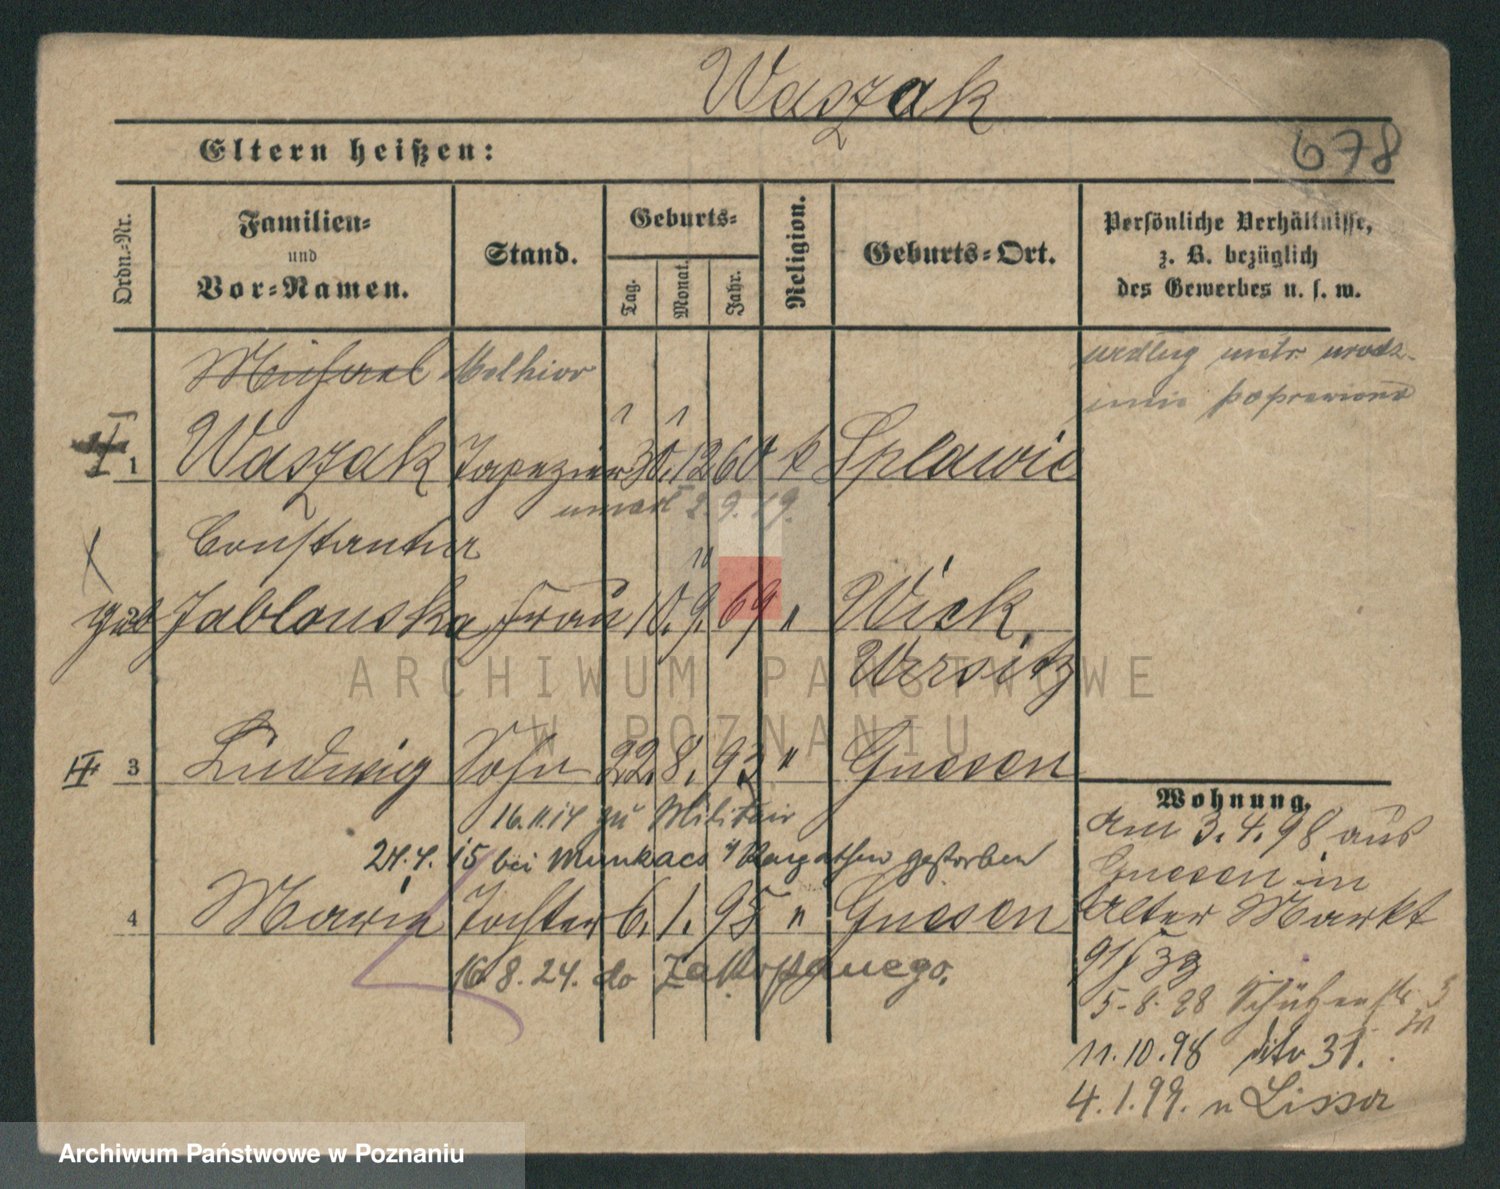 Waszak
678
Eltern heißen:
Ordn.-Nr.
Familien-
und
Vor-Namen.
Stand.
Geburts-
Tag.
Monat.
Jahr.
Religion.
Geburts-Ort.
Persönliche Verhältnisse,
z. B. bezüglich
des Gewerbes u. s. w.
Michael Melhior
wedlug metr. urodz.
imie poprawiono
I 1 Waszak Tapezier 30. 12 60 k Splawie
umarł 2.9.19.
Constantia
10
geb 2 Jablonska Frau 10. 9. 69 " Wiek
Wrsitz
II 3 Ludwig Sohn 22. 8. 93 " Gnesen
16.11.14 zu Militair
24.4.15 bei Munkacs / Karpathen gestorben
4 Maria Tochter 6. 1. 95 " Gnesen
16.8.24. do Zakopanego.
Wohnung.
Am 3.4.98 aus
Gnesen in
Alter Markt
91/
5.8.98 Schützenstr
11.10.98 dito 31.
4.1.99. n Lissa
ARCHIWUM PAŃSTWOWE
W POZNANIU
Archiwum Państwowe w Poznaniu